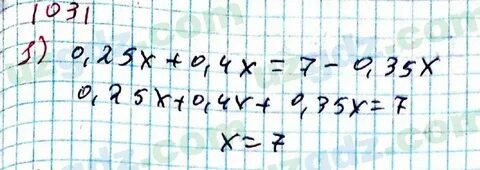 1031
1) 0,25x + 0,4x = 7 - 0,35x
0,25x + 0,4x + 0,35x = 7
x = 7